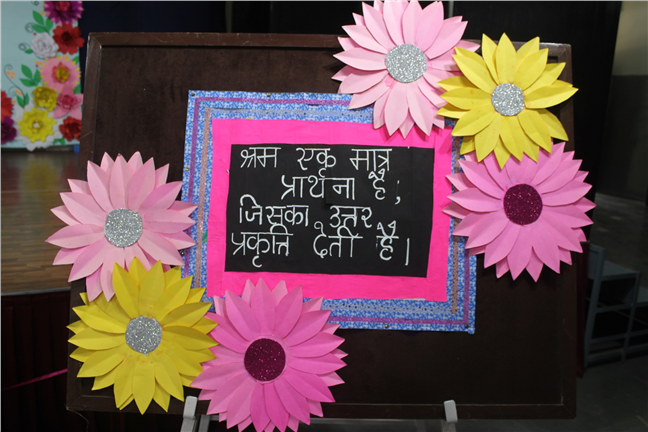 श्रम एक मात्र
प्रार्थना है ;
जिसका उत्तर
प्रकृति देती है।